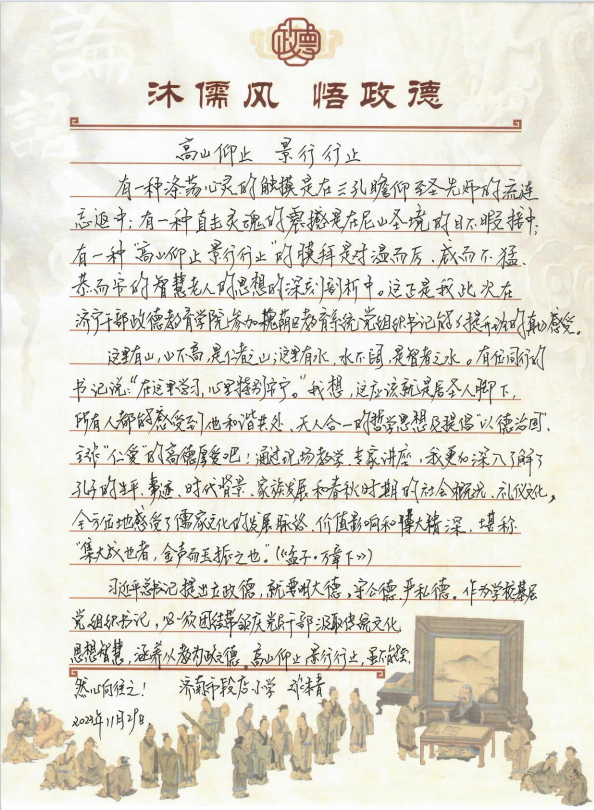 論
語
政德
沐儒风 悟政德
高山仰止 景行行止
有一种涤荡心灵的触摸是在三孔瞻仰至圣先师的流连
忘返中；有一种直击灵魂的震撼是在尼山圣境的目不暇接中；
有一种“高山仰止 景行行止”的膜拜是对温而厉、威而不猛、
恭而安的智慧老人的思想的深刻剖析中。这正是我此次在
济宁干部政德教育学院参加槐荫区教育系统党组织书记能力提升班的真切感受。
这里有山，山不高，是仁者之山；这里有水，水不阔，是智者之水。有位同行的
书记说：“在这里学习，心里特别安宁。”我想，这应该就是居圣人脚下，
所有人都能感受到他和谐共处、天人合一的哲学思想及提倡“以德治国”、
主张“仁爱”的高德厚爱吧！通过现场教学、专家讲座，我更加深入了解了
孔子的生平、事迹、时代背景、家族发展和春秋时期的社会概况、礼仪文化，
全方位地感受了儒家文化的发展脉络、价值影响和博大精深，堪称
“集大成也者，金声而玉振之也。”（《孟子·万章下》）
习近平总书记提出立政德，就要明大德、守公德、严私德。作为学校基层
党组织书记，必须团结带领广大党员干部汲取传统文化
思想智慧，涵养以教为政之德。高山仰止，景行行止，虽不能至，
然心向往之！ 济南市段店小学
2023年11月29日